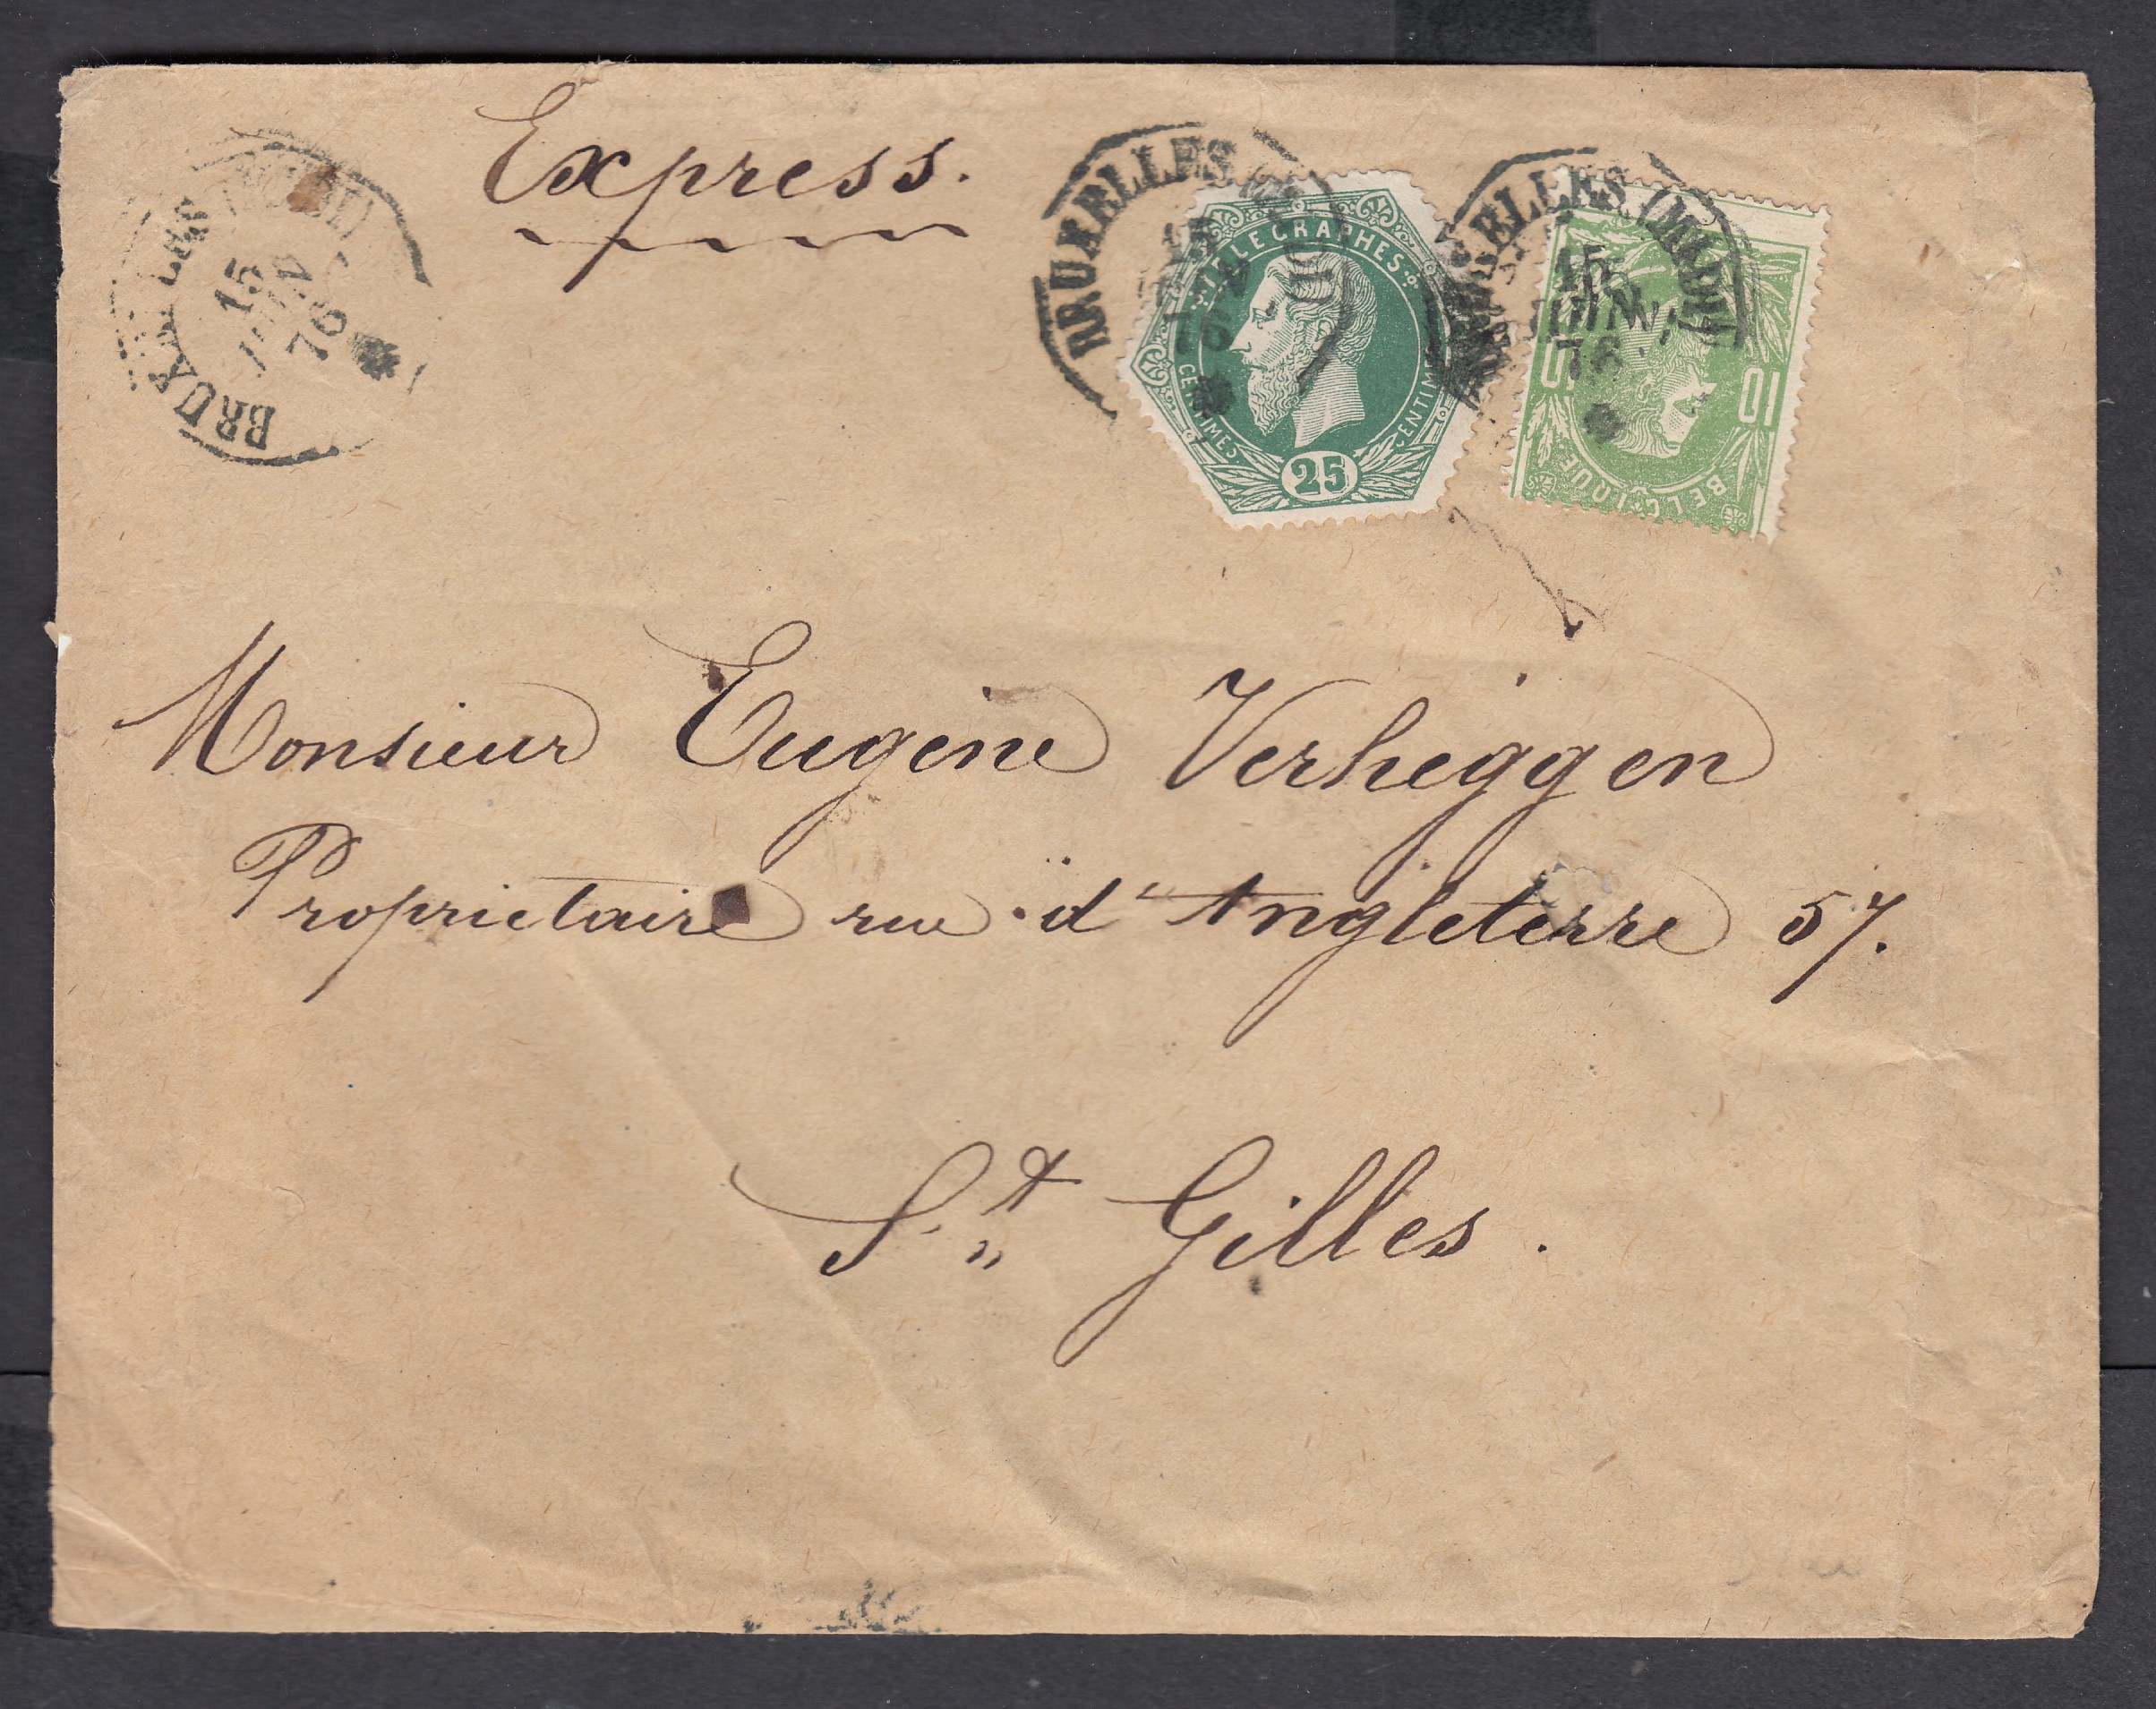 Express.
BRUXELLES (MIDI)
15 JUIN 76
BRUXELLES
15
76
TÉLÉGRAPHES.
CENTIMES. 25 CENTIMES
BRUXELLES (MIDI)
15 JUIN 76
10 10
BELGIQUE
Monsieur Eugène Verheggen
Propriétaire rue d'Angleterre 57.
St Gilles.